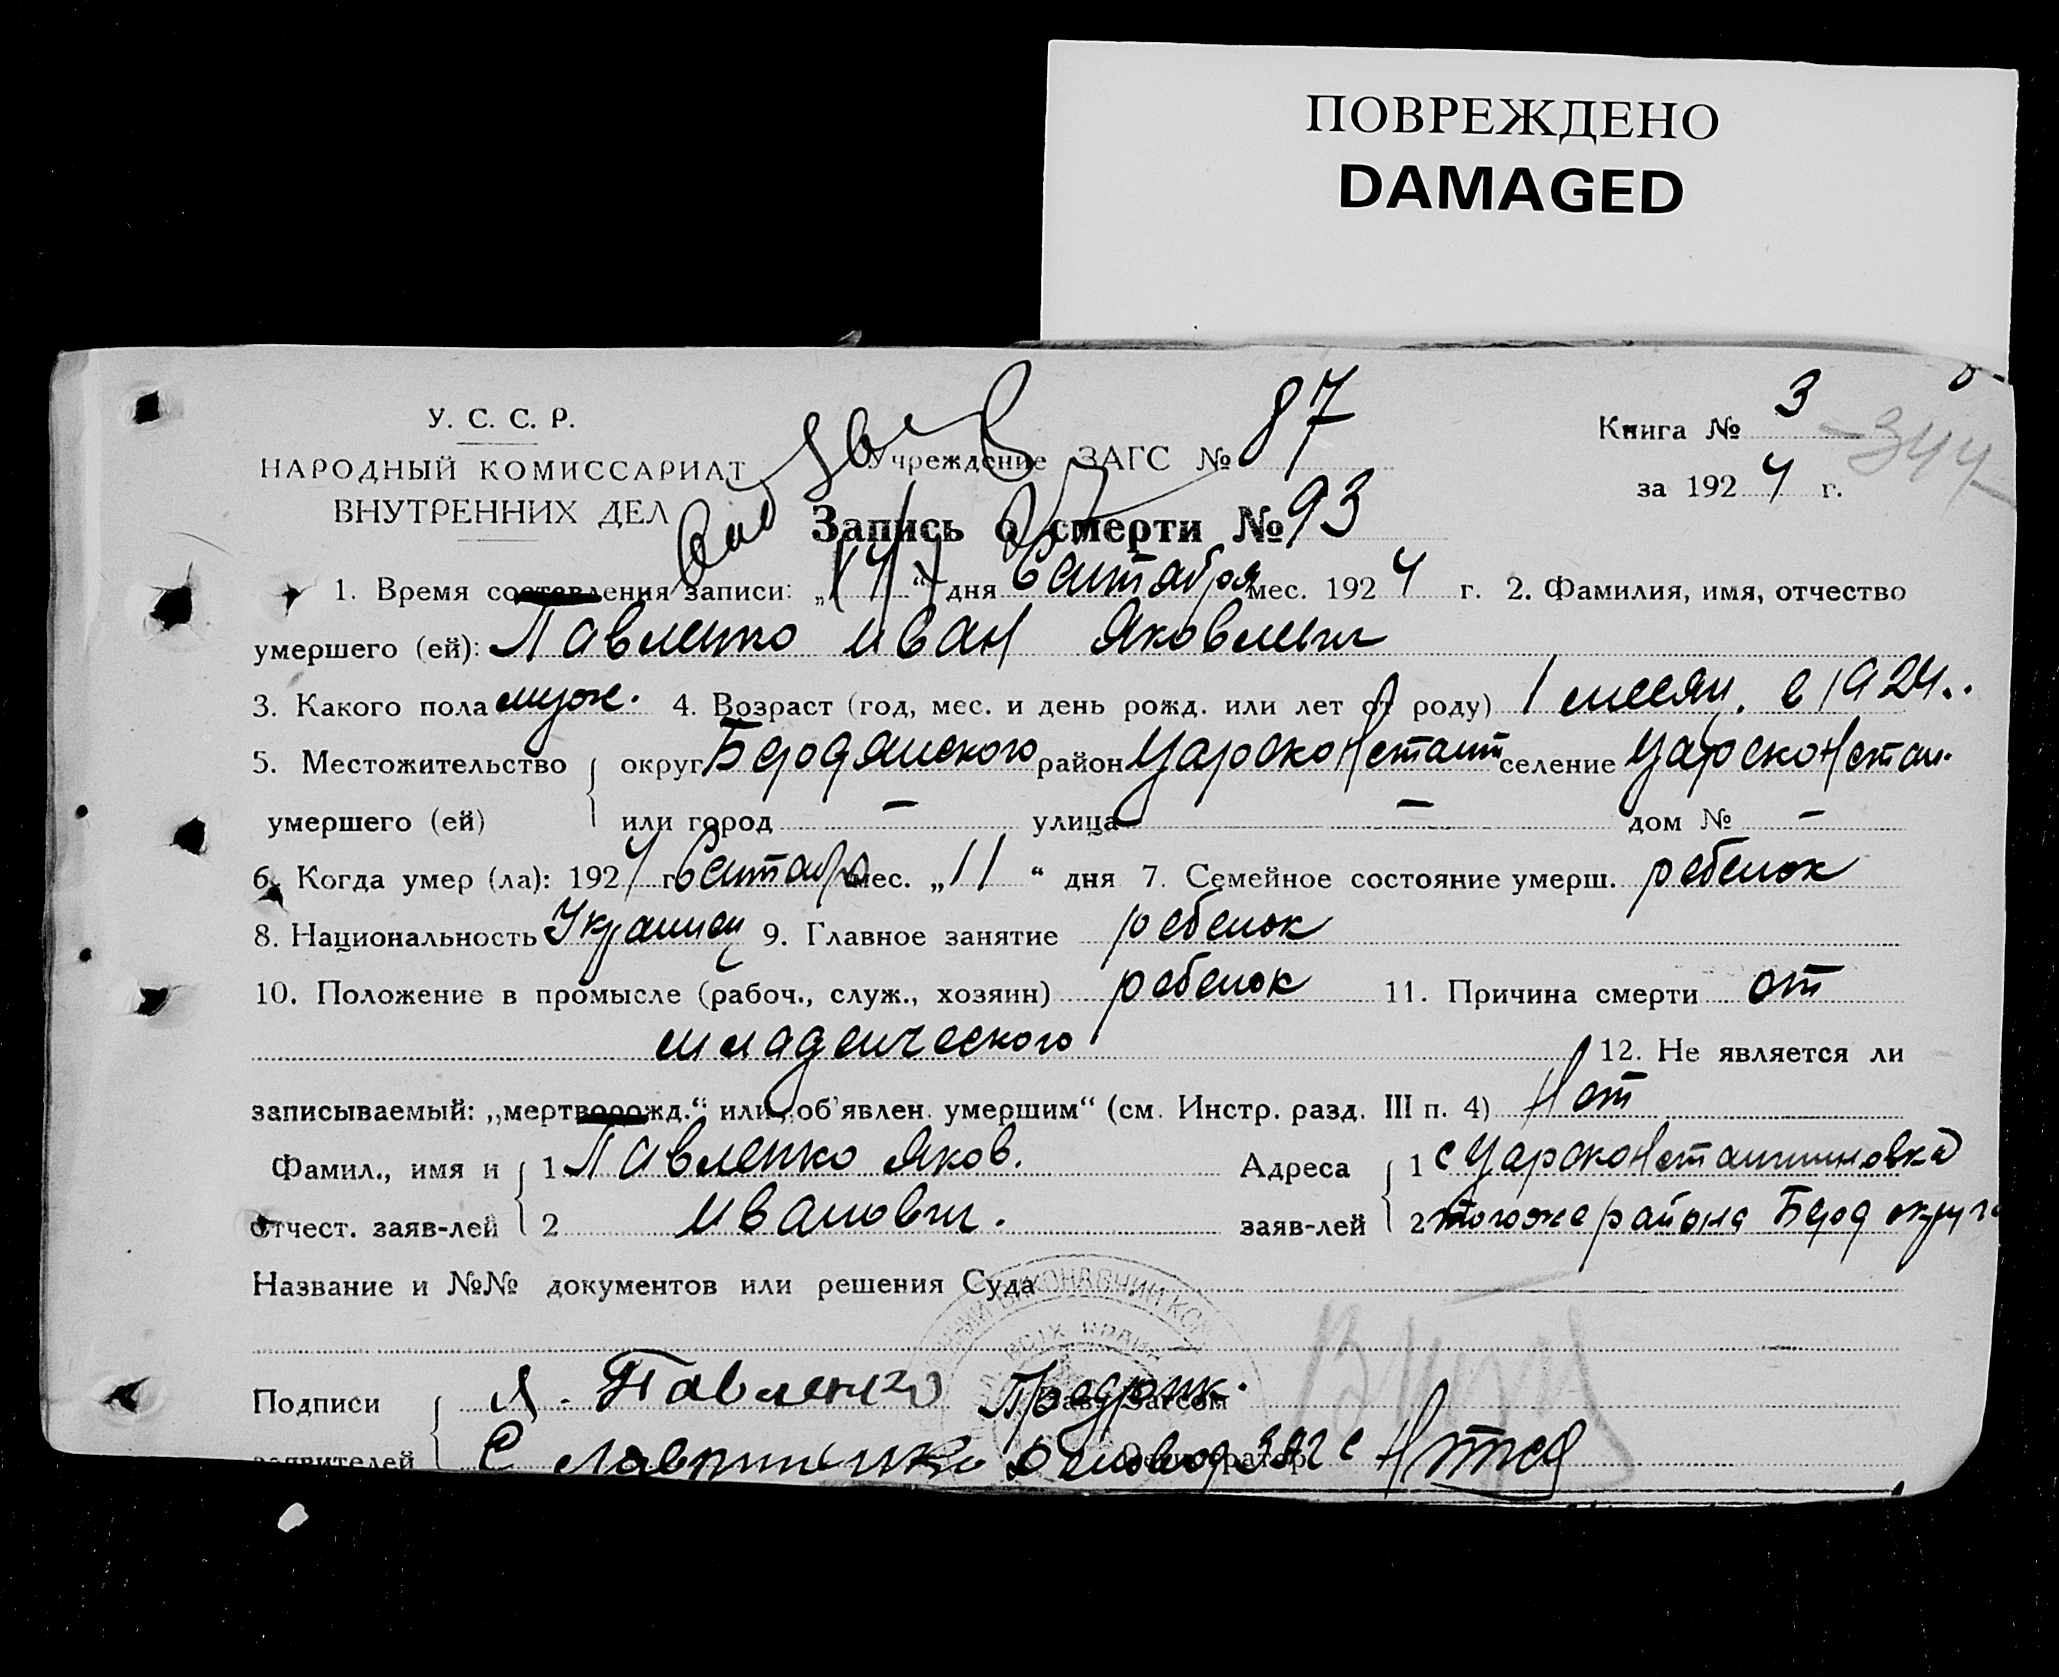 ПОВРЕЖДЕНО
DAMAGED
У. С. С. Р.
НАРОДНЫЙ КОМИССАРИАТ
ВНУТРЕННИХ ДЕЛ
Учреждение ЗАГС № 87
Книга № 3
344
за 1924 г.
Запись о смерти № 93
1. Время составления записи: „14“ дня Сентября мес. 1924 г. 2. Фамилия, имя, отчество
умершего (ей): Павленко Иван Яковлевич
3. Какого пола муж. 4. Возраст (год, мес. и день рожд. или лет от роду) 1 месяц. с 1924..
5. Местожительство умершего (ей) { округ Бердянского район Цареконстант селение Цареконстан.
или город – улица – дом № –
6. Когда умер (ла): 1924 г. Сентября мес. „11“ дня 7. Семейное состояние умерш. ребенок
8. Национальность Украинец 9. Главное занятие ребенок
10. Положение в промысле (рабоч., служ., хозяин) ребенок 11. Причина смерти от
младенческого 12. Не является ли
записываемый: „мертворожд.“ или „об'явлен. умершим“ (см. Инстр. разд. III п. 4) Нет
Фамил., имя и отчест. заяв-лей { 1 Павленко Яков.
2 Иванович.
Адреса заяв-лей { 1 с Цареконстантиновка
2 того же района Берд округа
Название и №№ документов или решения Суда
Подписи заявителей { Я. Павленко